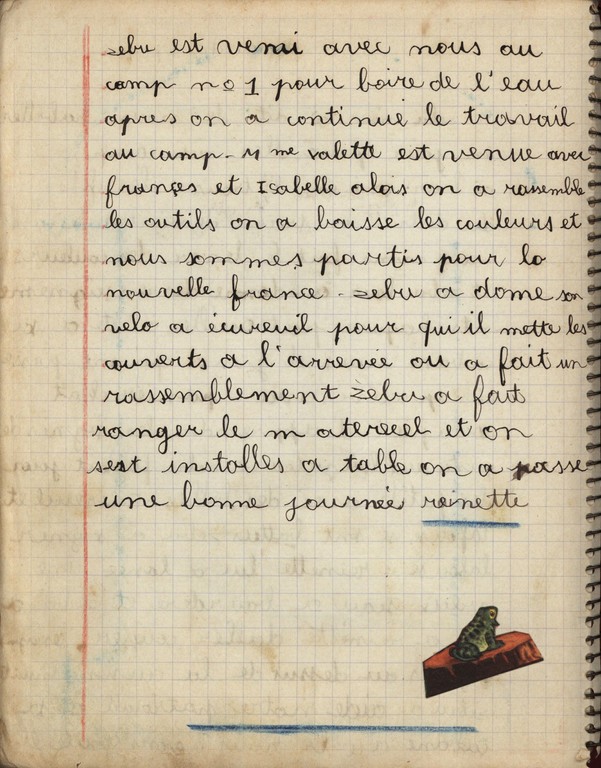 zebu est venu avec nous au
camp no 1 pour boire de l'eau
apres on a continué le travail
au camp. Mme valette est venue avec
françes et Isabelle alois on a rassemble
les outils on a baisse les couleurs et
nous sommes partis pour la
nouvelle france. zebu a donne son
velo a écureuil pour qui il mette les
couverts a l'arrevée ou a fait un
rassemblement zebu a fait
ranger le matereel et on
sest installes a table on a passe
une bonne journée reinette